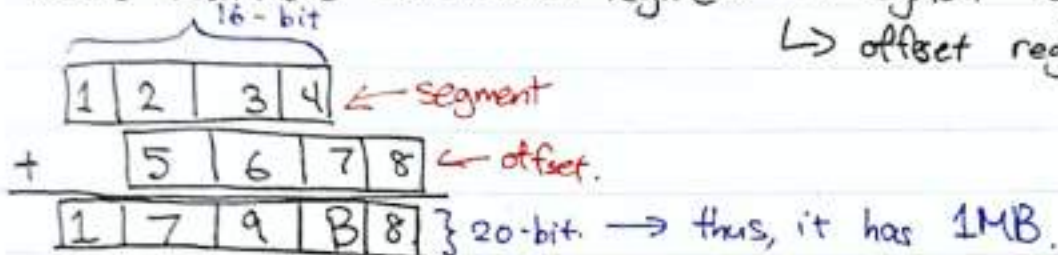 16-bit
↳ offset
1 2 3 4 ← segment
+ 5 6 7 8 ← offset.
1 7 9 B 8 } 20-bit. → thus, it has 1MB.